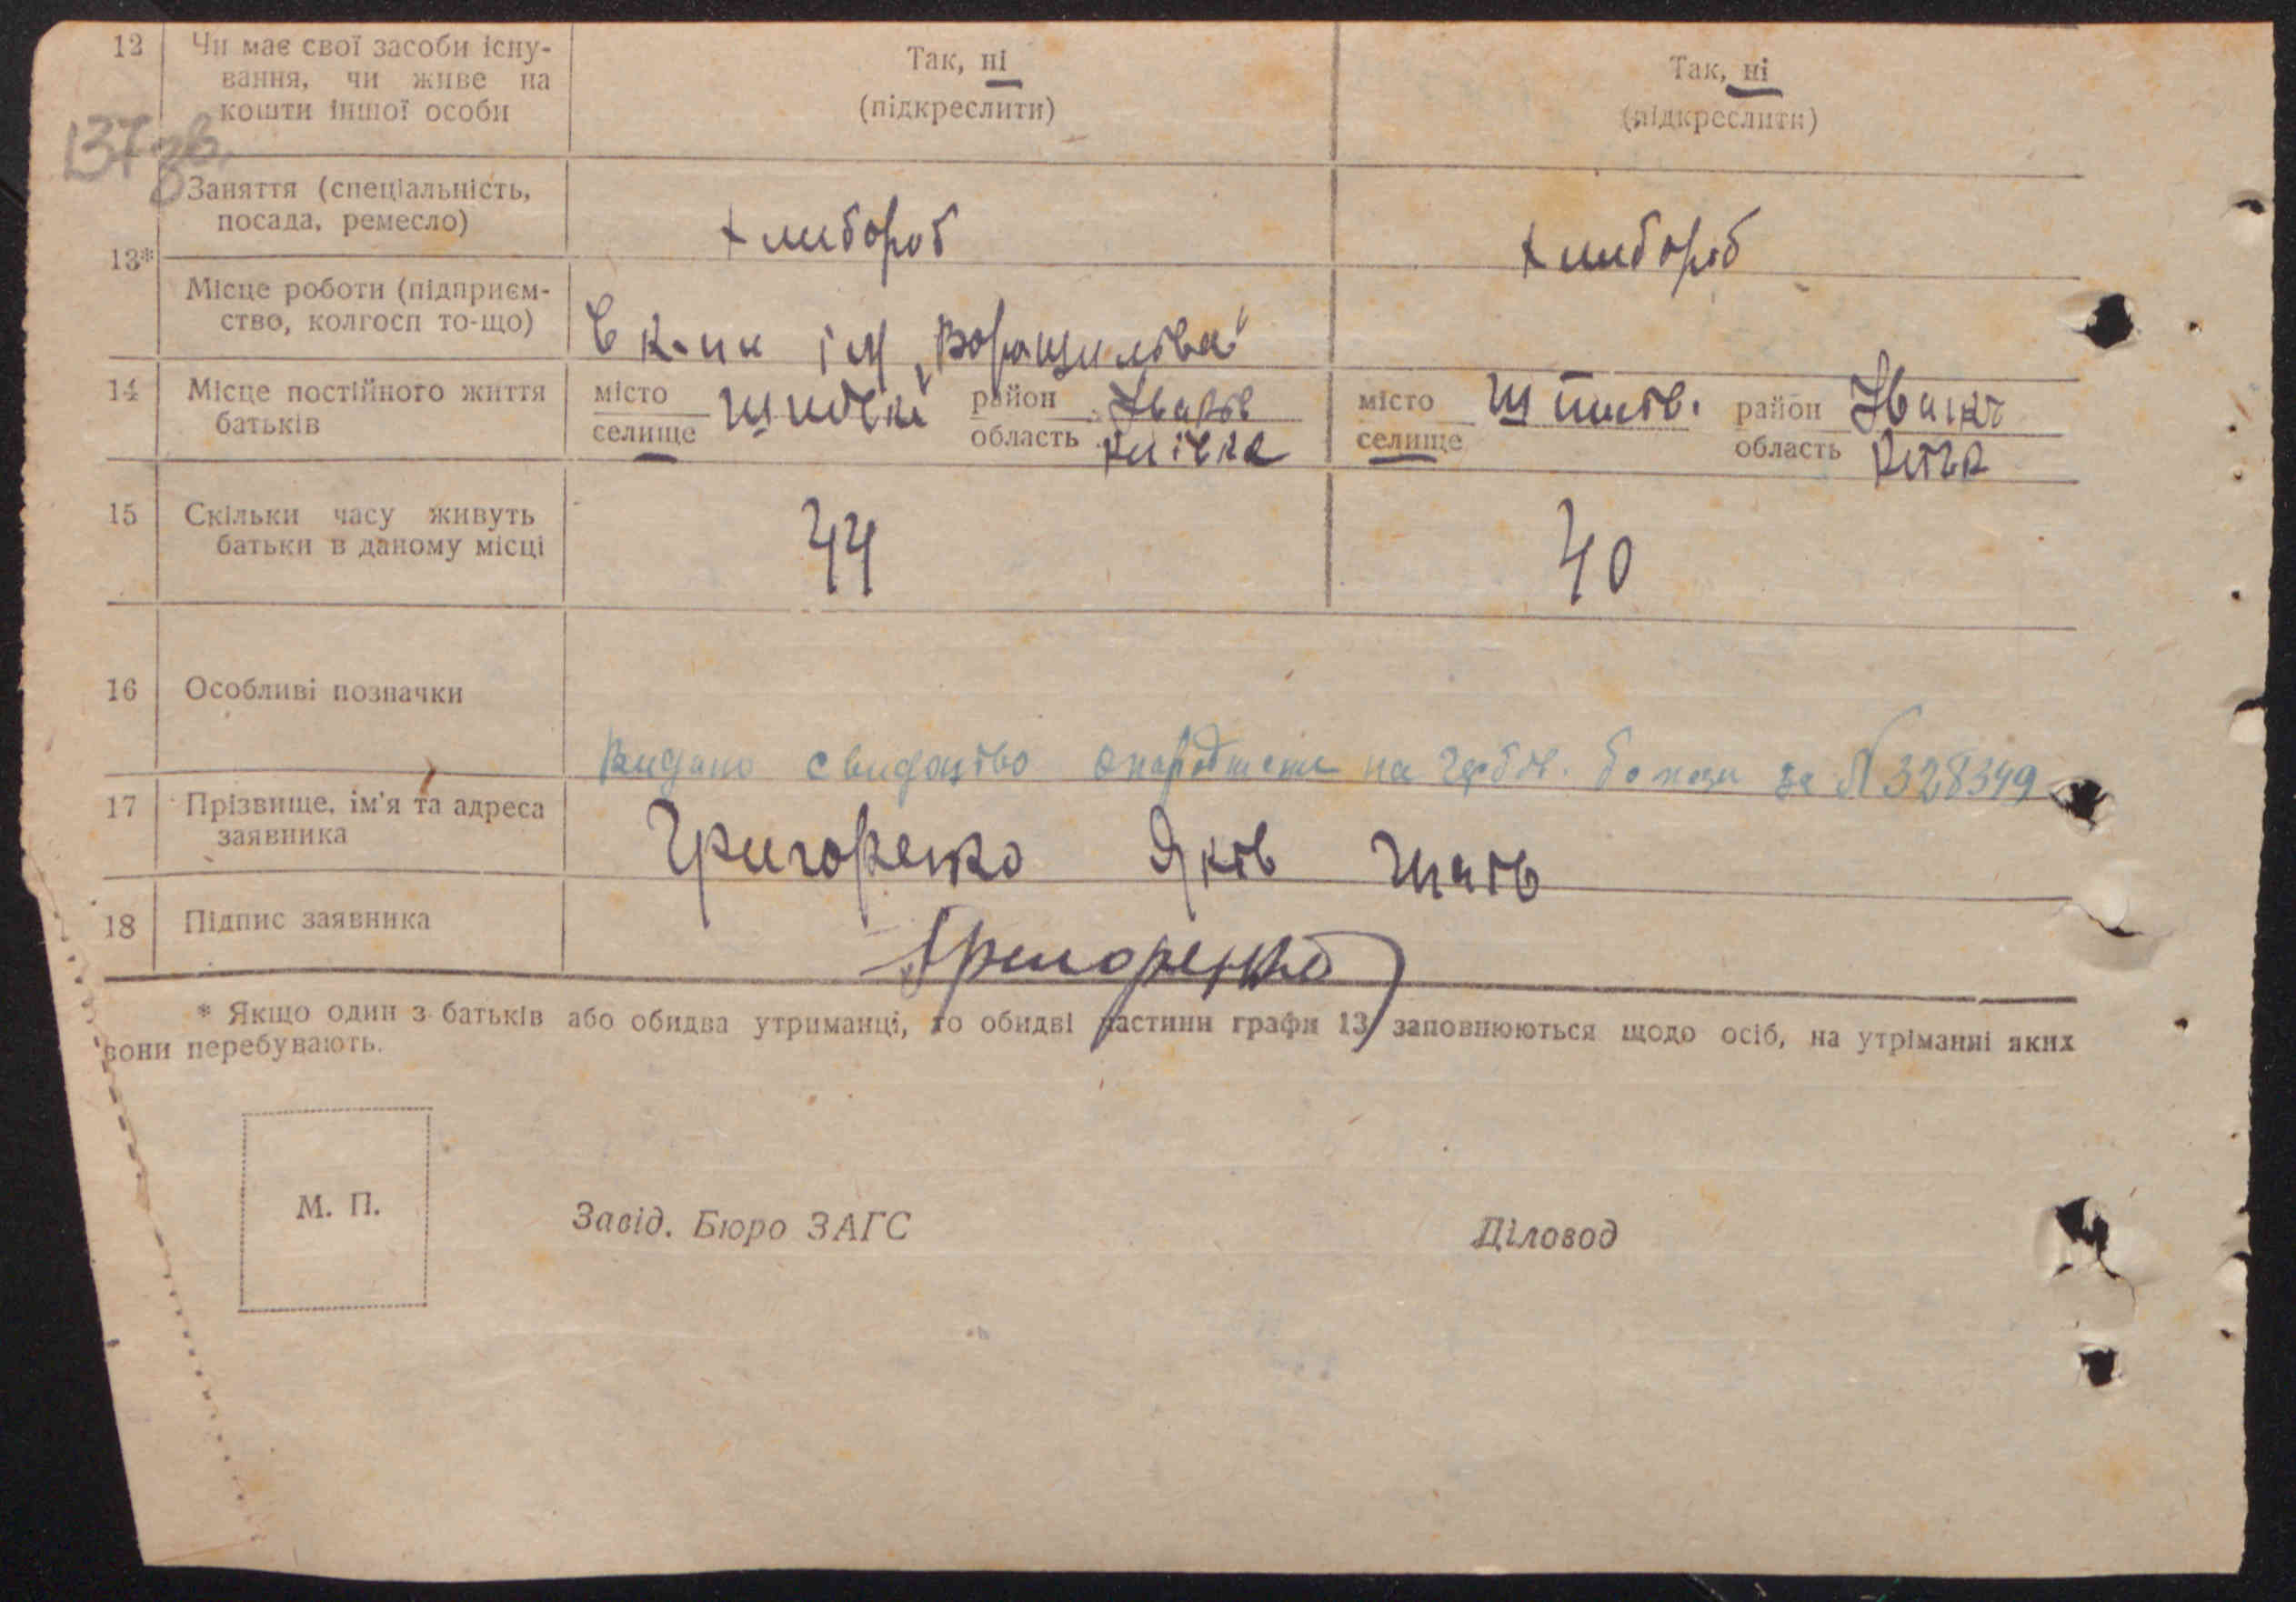 12 Чи має свої засоби існу-
вання, чи живе на
кошти іншої особи
Так, ні
(підкреслити)
Так, ні
(підкреслити)
137 зв.
13*
Заняття (спеціальність,
посада, ремесло)
хлибороб
хлибороб
Місце роботи (підприєм-
ство, колгосп то-що)
В ім „Ворошилова"
14 Місце постійного життя
батьків
місто
селище
район
область
місто
селище
район
область
15 Скільки часу живуть
батьки в даному місці
44
40
16 Особливі позначки
Видано свидоцтво на за № 328349
17 Прізвище, ім'я та адреса
заявника
Григоренко Яків
18 Підпис заявника
Григоренко
* Якщо один з батьків або обидва утриманці, то обидві частини графи 13 заповнюються щодо осіб, на утріманні яких
вони перебувають.
М. П.
Завід. Бюро ЗАГС
Діловод